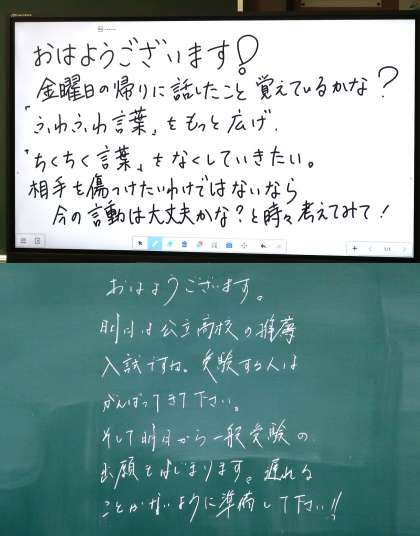 おはようございます!
金曜日の帰りに話したこと覚えているかな?
「ふわふわ言葉」をもっと広げ、
「ちくちく言葉」をなくしていきたい。
相手を傷つけたいわけではないなら
今の言動は大丈夫かな?と時々考えてみて!
1/1
おはようございます。
明日は公立高校の推薦
入試ですね。受験する人は
がんばってきて下さい。
そして明日から一般受験の
出願もはじまります。遅れる
ことがないように準備して下さい!!